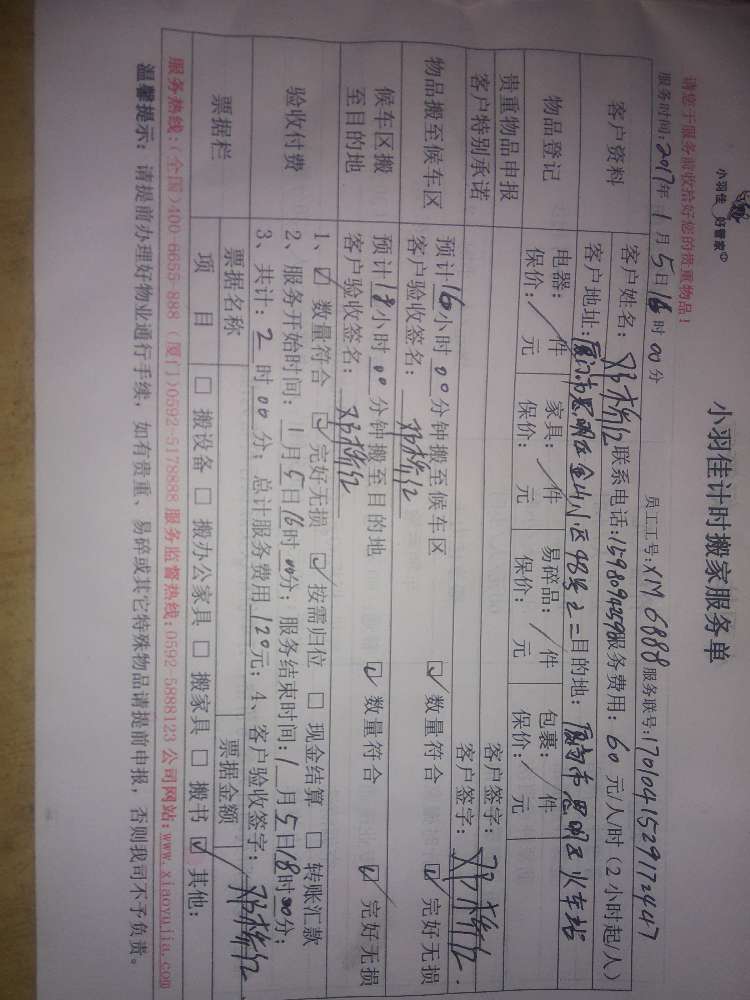 小羽佳 好管家
小羽佳计时搬家服务单
请您于服务前收拾好您的贵重物品！
员工工号：XM6888 服务联号：1701041529172447
服务时间：2017年1月5日16时00分
客户资料
客户姓名： 联系电话：15980940598 服务费用：60元/人/时（2小时起/人）
客户地址：厦门市思明区金山小区98号之二 目的地：厦门市思明区火车站
物品登记
电器：/件 家具：/件 易碎品：/件 包裹：/件
保价： 元 保价： 元 保价： 元 保价： 元
贵重物品申报 客户签字：
客户特别承诺 客户签字：
物品搬至候车区
预计16小时00分钟搬至候车区 ☑ 数量符合 ☑ 完好无损
客户验收签名：
候车区搬至目的地
预计18小时00分钟搬至目的地 ☑ 数量符合 ☑ 完好无损
客户验收签名：
验收付费
1、☑ 数量符合 ☑ 完好无损 ☑ 按需归位 □ 现金结算 □ 转账汇款
2、服务开始时间：1月5日16时00分；服务结束时间：1月5日18时00分；
3、共计：2时00分；总计服务费用120元；4、客户验收签字：
票据栏
票据名称 票据金额
项目 □ 搬设备 □ 搬办公家具 □ 搬家具 □ 搬书 ☑ 其他：
服务热线：（全国）400-6655-888（厦门）0592-5178888 服务监督热线：0592-5888123 公司网站：www.xiaoyujia.com
温馨提示：请提前办理好物业通行手续，如有贵重、易碎或其它特殊物品请提前申报，否则我司不予负责。